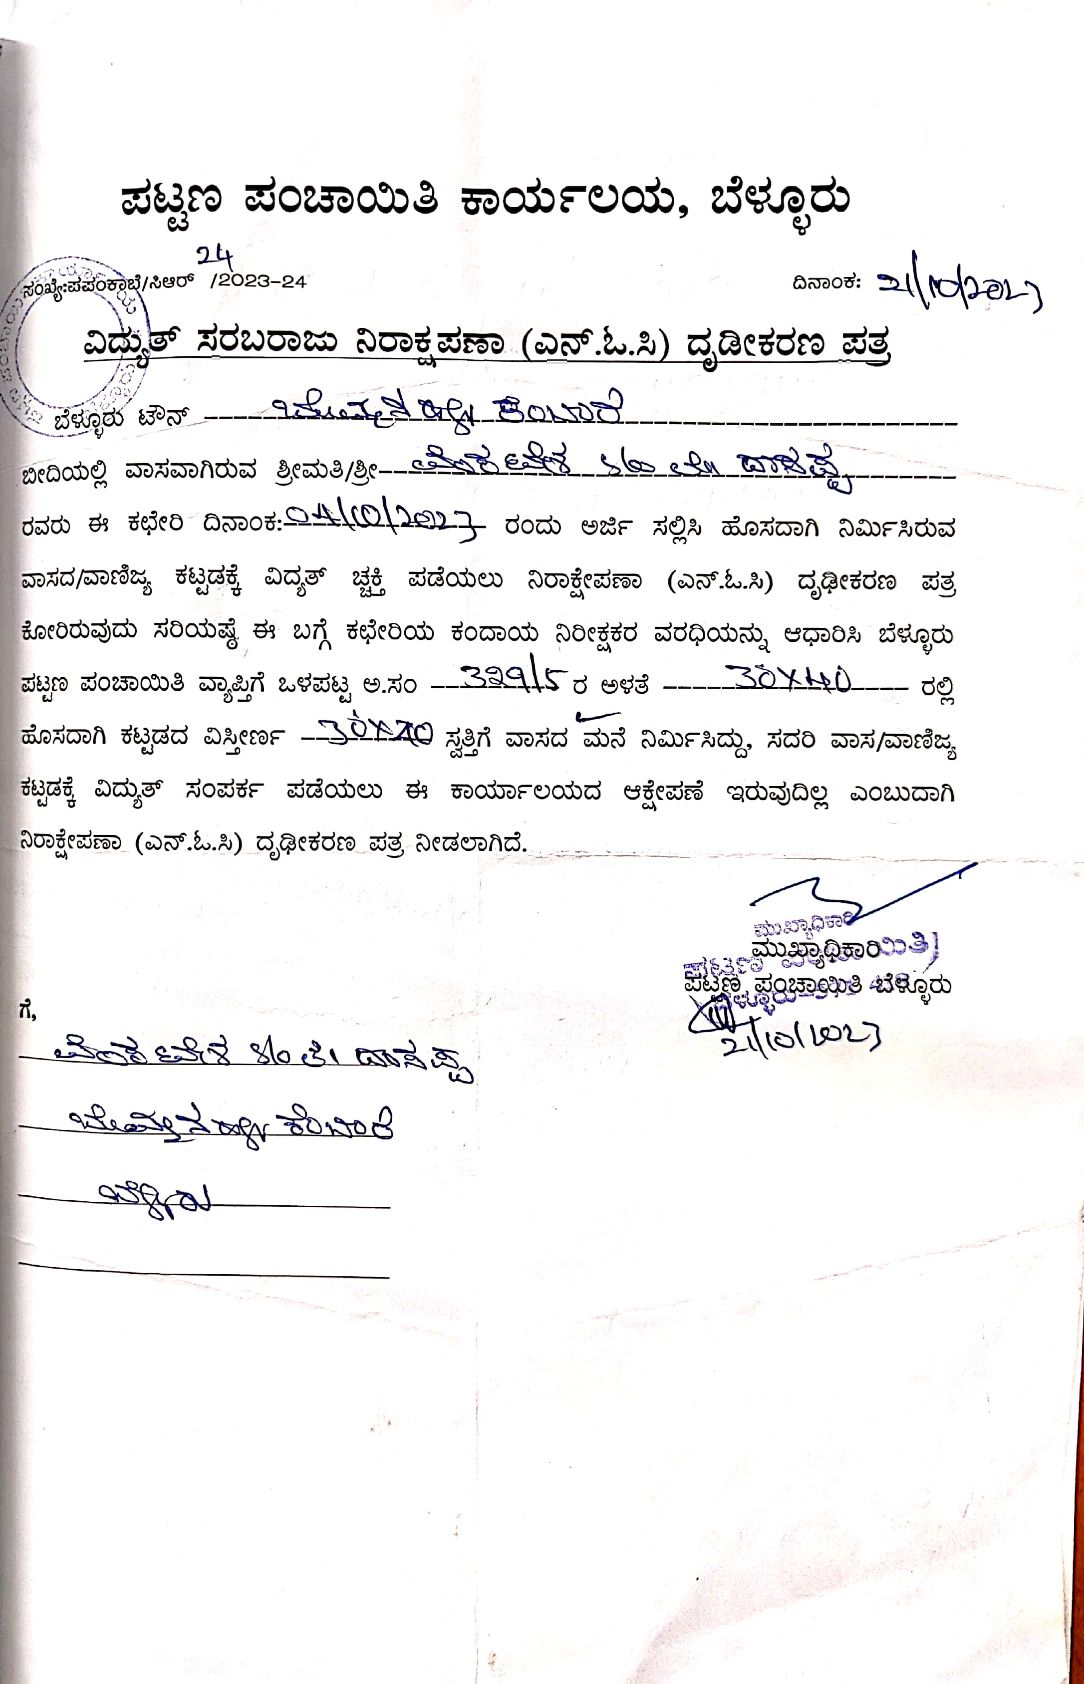 ಪಟ್ಟಣ ಪಂಚಾಯಿತಿ ಕಾರ್ಯಲಯ, ಬೆಳ್ಳೂರು
24
ಸಂಖ್ಯೆ:ಪಪಂಕಾಬೆ/ಸಿಆರ್ /2023-24 ದಿನಾಂಕ: 21/10/2023
ವಿದ್ಯುತ್ ಸರಬರಾಜು ನಿರಾಕ್ಷಪಣಾ (ಎನ್.ಓ.ಸಿ) ದೃಡೀಕರಣ ಪತ್ರ
ಬೆಳ್ಳೂರು ಟೌನ್
ಬೀದಿಯಲ್ಲಿ ವಾಸವಾಗಿರುವ ಶ್ರೀಮತಿ/ಶ್ರೀ ವೆಂಕಟೇಶ S/o ಲೇ ದಾಸಪ್ಪ
ರವರು ಈ ಕಛೇರಿ ದಿನಾಂಕ:04/10/2023 ರಂದು ಅರ್ಜಿ ಸಲ್ಲಿಸಿ ಹೊಸದಾಗಿ ನಿರ್ಮಿಸಿರುವ
ವಾಸದ/ವಾಣಿಜ್ಯ ಕಟ್ಟಡಕ್ಕೆ ವಿದ್ಯತ್ ಚ್ಚಕ್ತಿ ಪಡೆಯಲು ನಿರಾಕ್ಷೇಪಣಾ (ಎನ್.ಓ.ಸಿ) ದೃಢೀಕರಣ ಪತ್ರ
ಕೋರಿರುವುದು ಸರಿಯಷ್ಠೆ ಈ ಬಗ್ಗೆ ಕಛೇರಿಯ ಕಂದಾಯ ನಿರೀಕ್ಷಕರ ವರಧಿಯನ್ನು ಆಧಾರಿಸಿ ಬೆಳ್ಳೂರು
ಪಟ್ಟಣ ಪಂಚಾಯಿತಿ ವ್ಯಾಪ್ತಿಗೆ ಒಳಪಟ್ಟ ಅ.ಸಂ 329/5 ರ ಅಳತೆ 30X40 ರಲ್ಲಿ
ಹೊಸದಾಗಿ ಕಟ್ಟಡದ ವಿಸ್ತೀರ್ಣ 30X40 ಸ್ವತ್ತಿಗೆ ವಾಸದ ಮನೆ ನಿರ್ಮಿಸಿದ್ದು, ಸದರಿ ವಾಸ/ವಾಣಿಜ್ಯ
ಕಟ್ಟಡಕ್ಕೆ ವಿದ್ಯುತ್ ಸಂಪರ್ಕ ಪಡೆಯಲು ಈ ಕಾರ್ಯಾಲಯದ ಆಕ್ಷೇಪಣೆ ಇರುವುದಿಲ್ಲ ಎಂಬುದಾಗಿ
ನಿರಾಕ್ಷೇಪಣಾ (ಎನ್.ಓ.ಸಿ) ದೃಢೀಕರಣ ಪತ್ರ ನೀಡಲಾಗಿದೆ.
ಮುಖ್ಯಾಧಿಕಾರಿ
ಮುಖ್ಯಾಧಿಕಾರಿ
ಪಟ್ಟಣ ಪಂಚಾಯಿತಿ ಬೆಳ್ಳೂರು
21/10/2023
ಗೆ,
ವೆಂಕಟೇಶ S/o ಲೇ ದಾಸಪ್ಪ
ಬೆಳ್ಳೂರು